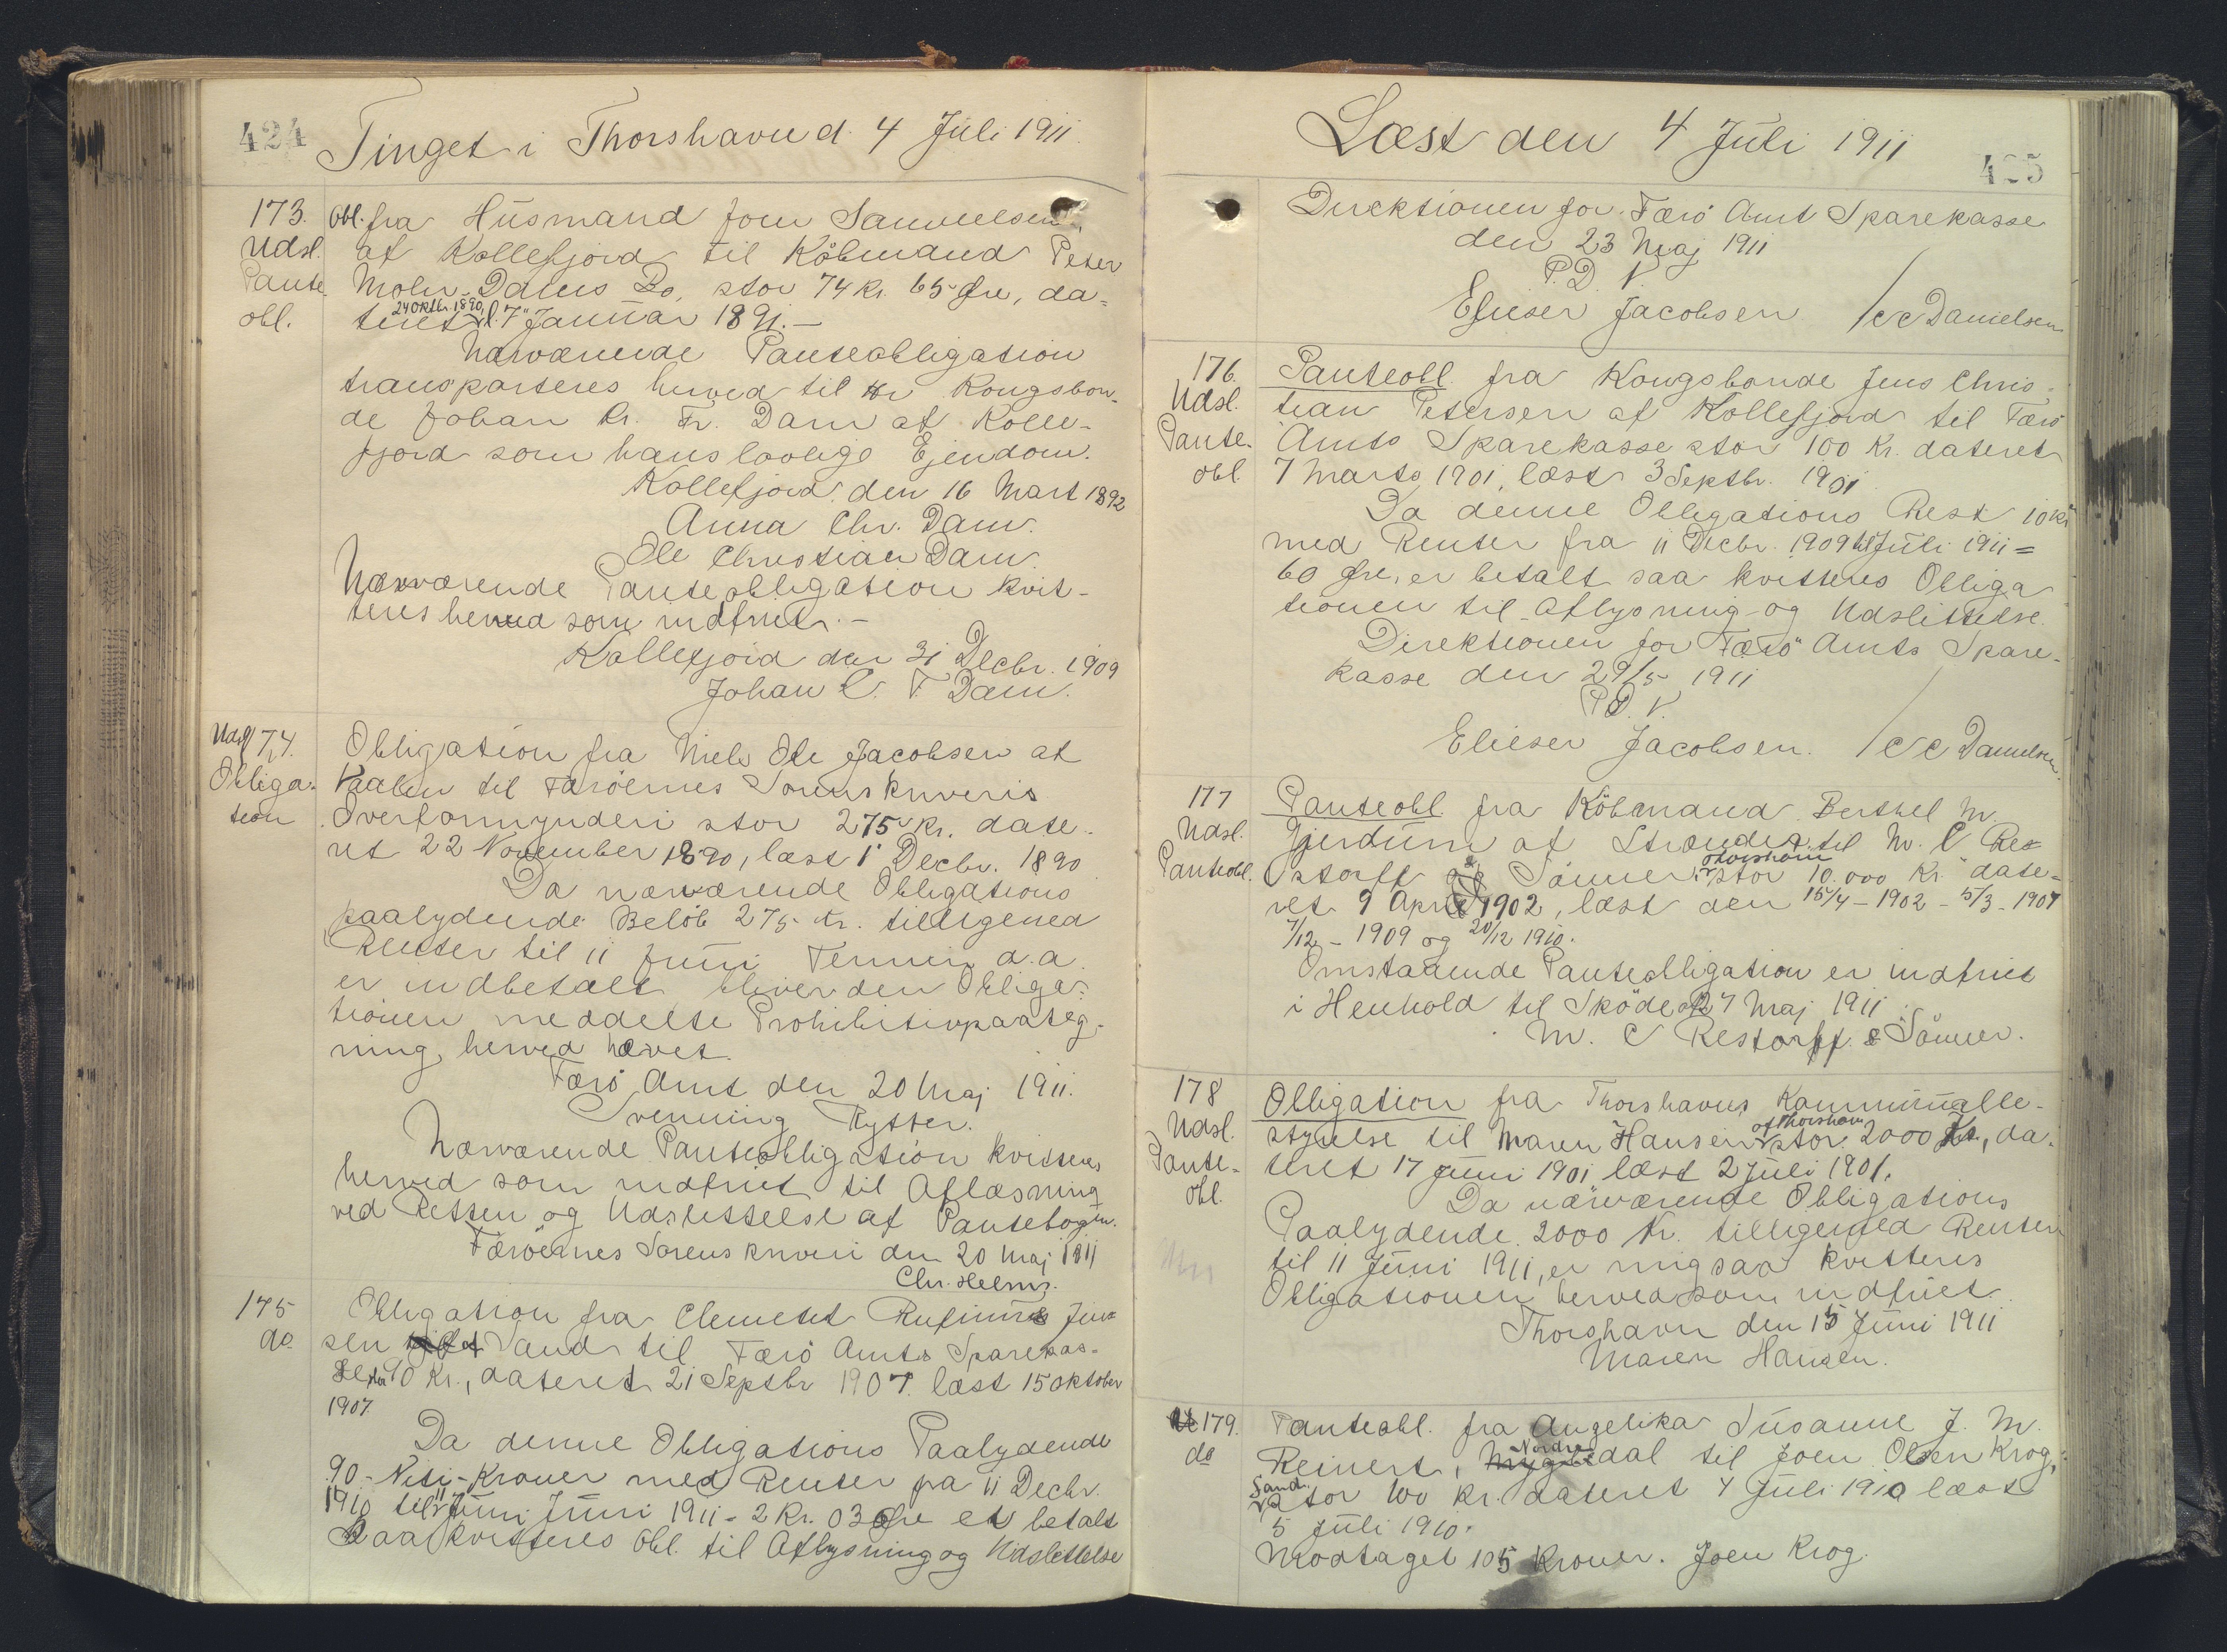 424
Tinget i Thorshavn d. 4 Juli 1911.
173. Obl. fra Húsmand Joen Samuelsen,
Udsl. af Kollefjord til Köbmand Peter
Pante- Mohr Dahls Bo, stor 74 Kr. 65 Øre, da=
obl. teret 24 Oktbr. 1890, l. 7 Januar 1891. —
Nærværende Panteobligation
transporteres herved til Hr Kongsbon-
de Johan Chr. Fr. Dam af Kolle-
fjord som hans lovlige Ejendom.
Kollefjord den 16 Mart 1892
Anna Chr. Dam.
Ole Christian Dam.
Nærværende Panteobligation kvit-
teres herved som indfriet. —
Kollefjord den 31 Decbr. 1909
Johan C. F Dam.
Udsl 174. Obligation fra Niels Ole Jacobsen af
Obliga- til Færöernes Sorenskriveris
tion Overformynderi stor 275 Kr. date-
ret 22 November 1890, læst 1 Decbr. 1890
Da nærværende Obligations
paalydende Belöb 275 Kr. tilligemed
Renter til 11 Juni Termin d.a.
er indbetalt bliver den Obliga-
tionen meddelte Prohibitivpaateg-
ning, herved hævet.
Færö Amt den 20 Maj 1911.
Svenning Rytter.
Nærværende Panteobligation kvitteres
herved som indfriet til Aflæsning
ved Retten og Udslettelse af Pantebogen.
Færöernes Sorenskriveri den 20 Maj 1911
Chr. Helms.
175 Obligation fra Clementet Rufinus Jen=
do. sen af Sand til Færö Amts Sparekas-
se stor 90 Kr., dateret 21 Septbr 1907. læst 15 Oktober
1907
Da denne Obligations Paalydende
90 - Niti - Kroner med Renter fra 11 Decbr.
1910 til 11 Juni Juni 1911 - 2 Kr. 03 Øre er betalt
saa kvitteres Obl. til Aflysning og Udslettelse
Læst den 4 Juli 1911
425
Direktionen for Færö Amt Sparekasse
den 23 Maj 1911
P. D. V.
Elieser Jacobsen / C C Danielsen
176. Panteobl. fra Kongsbonde Jens Chris-
Udsl. tian Petersen af Kollefjord til Færö
Pante- Amts Sparekasse stor 100 Kr. dateret
obl. 7 Marts 1901, læst 3 Septbr. 1901
Da denne Obligations Rest 10 Kr
med Renter fra 11 Decbr. 1909 til Juli 1911 =
60 Øre, er betalt saa kvitteres Obliga
tionen til Aflysning og Udslettelse.
Direktionen for Færö Amts Spare-
kasse den 29/5 1911
P. D. V.
Elieser Jacobsen. / C C Danielsen.
177 Panteobl. fra Köbmand Berthel M.
Udsl. Gjerdum af Strænder til M. C Re=
Panteobl. storff & Sönner, Thorshavn stor 10.000 Kr date-
ret 9 April 1902, læst den 15/4 - 1902 - 5/3 - 1907
7/12 - 1909 og 20/12 1910.
Omstaaende Panteobligation er indfriet
i Henhold til Sköde af 27 Maj 1911.
M. C Restorff & Sönner.
178 Obligation fra Thorshavns Kommunalbe-
Udsl. styrelse til Maren Hansen af Thorshavn stor 2000 Kr., da-
Pante- teret 17 Juni 1901 læst 2 Juli 1901.
obl. Da nærværende Obligations
Paalydende 2000 Kr. tilligemed Renter
til 11 Juni 1911, er mig saa kvitteres
Obligationen herved som indfriet.
Thorshavn den 15 Juni 1911
Maren Hansen.
179. Panteobl. fra Angelika Susanne J. M.
do Reinert, Nordredal til Joen Olsen Krog,
Sand. stor 100 Kr. dateret 4 Juli 1910 læst
5 Juli 1910.
Modtaget 105 Kroner. Joen Krog.